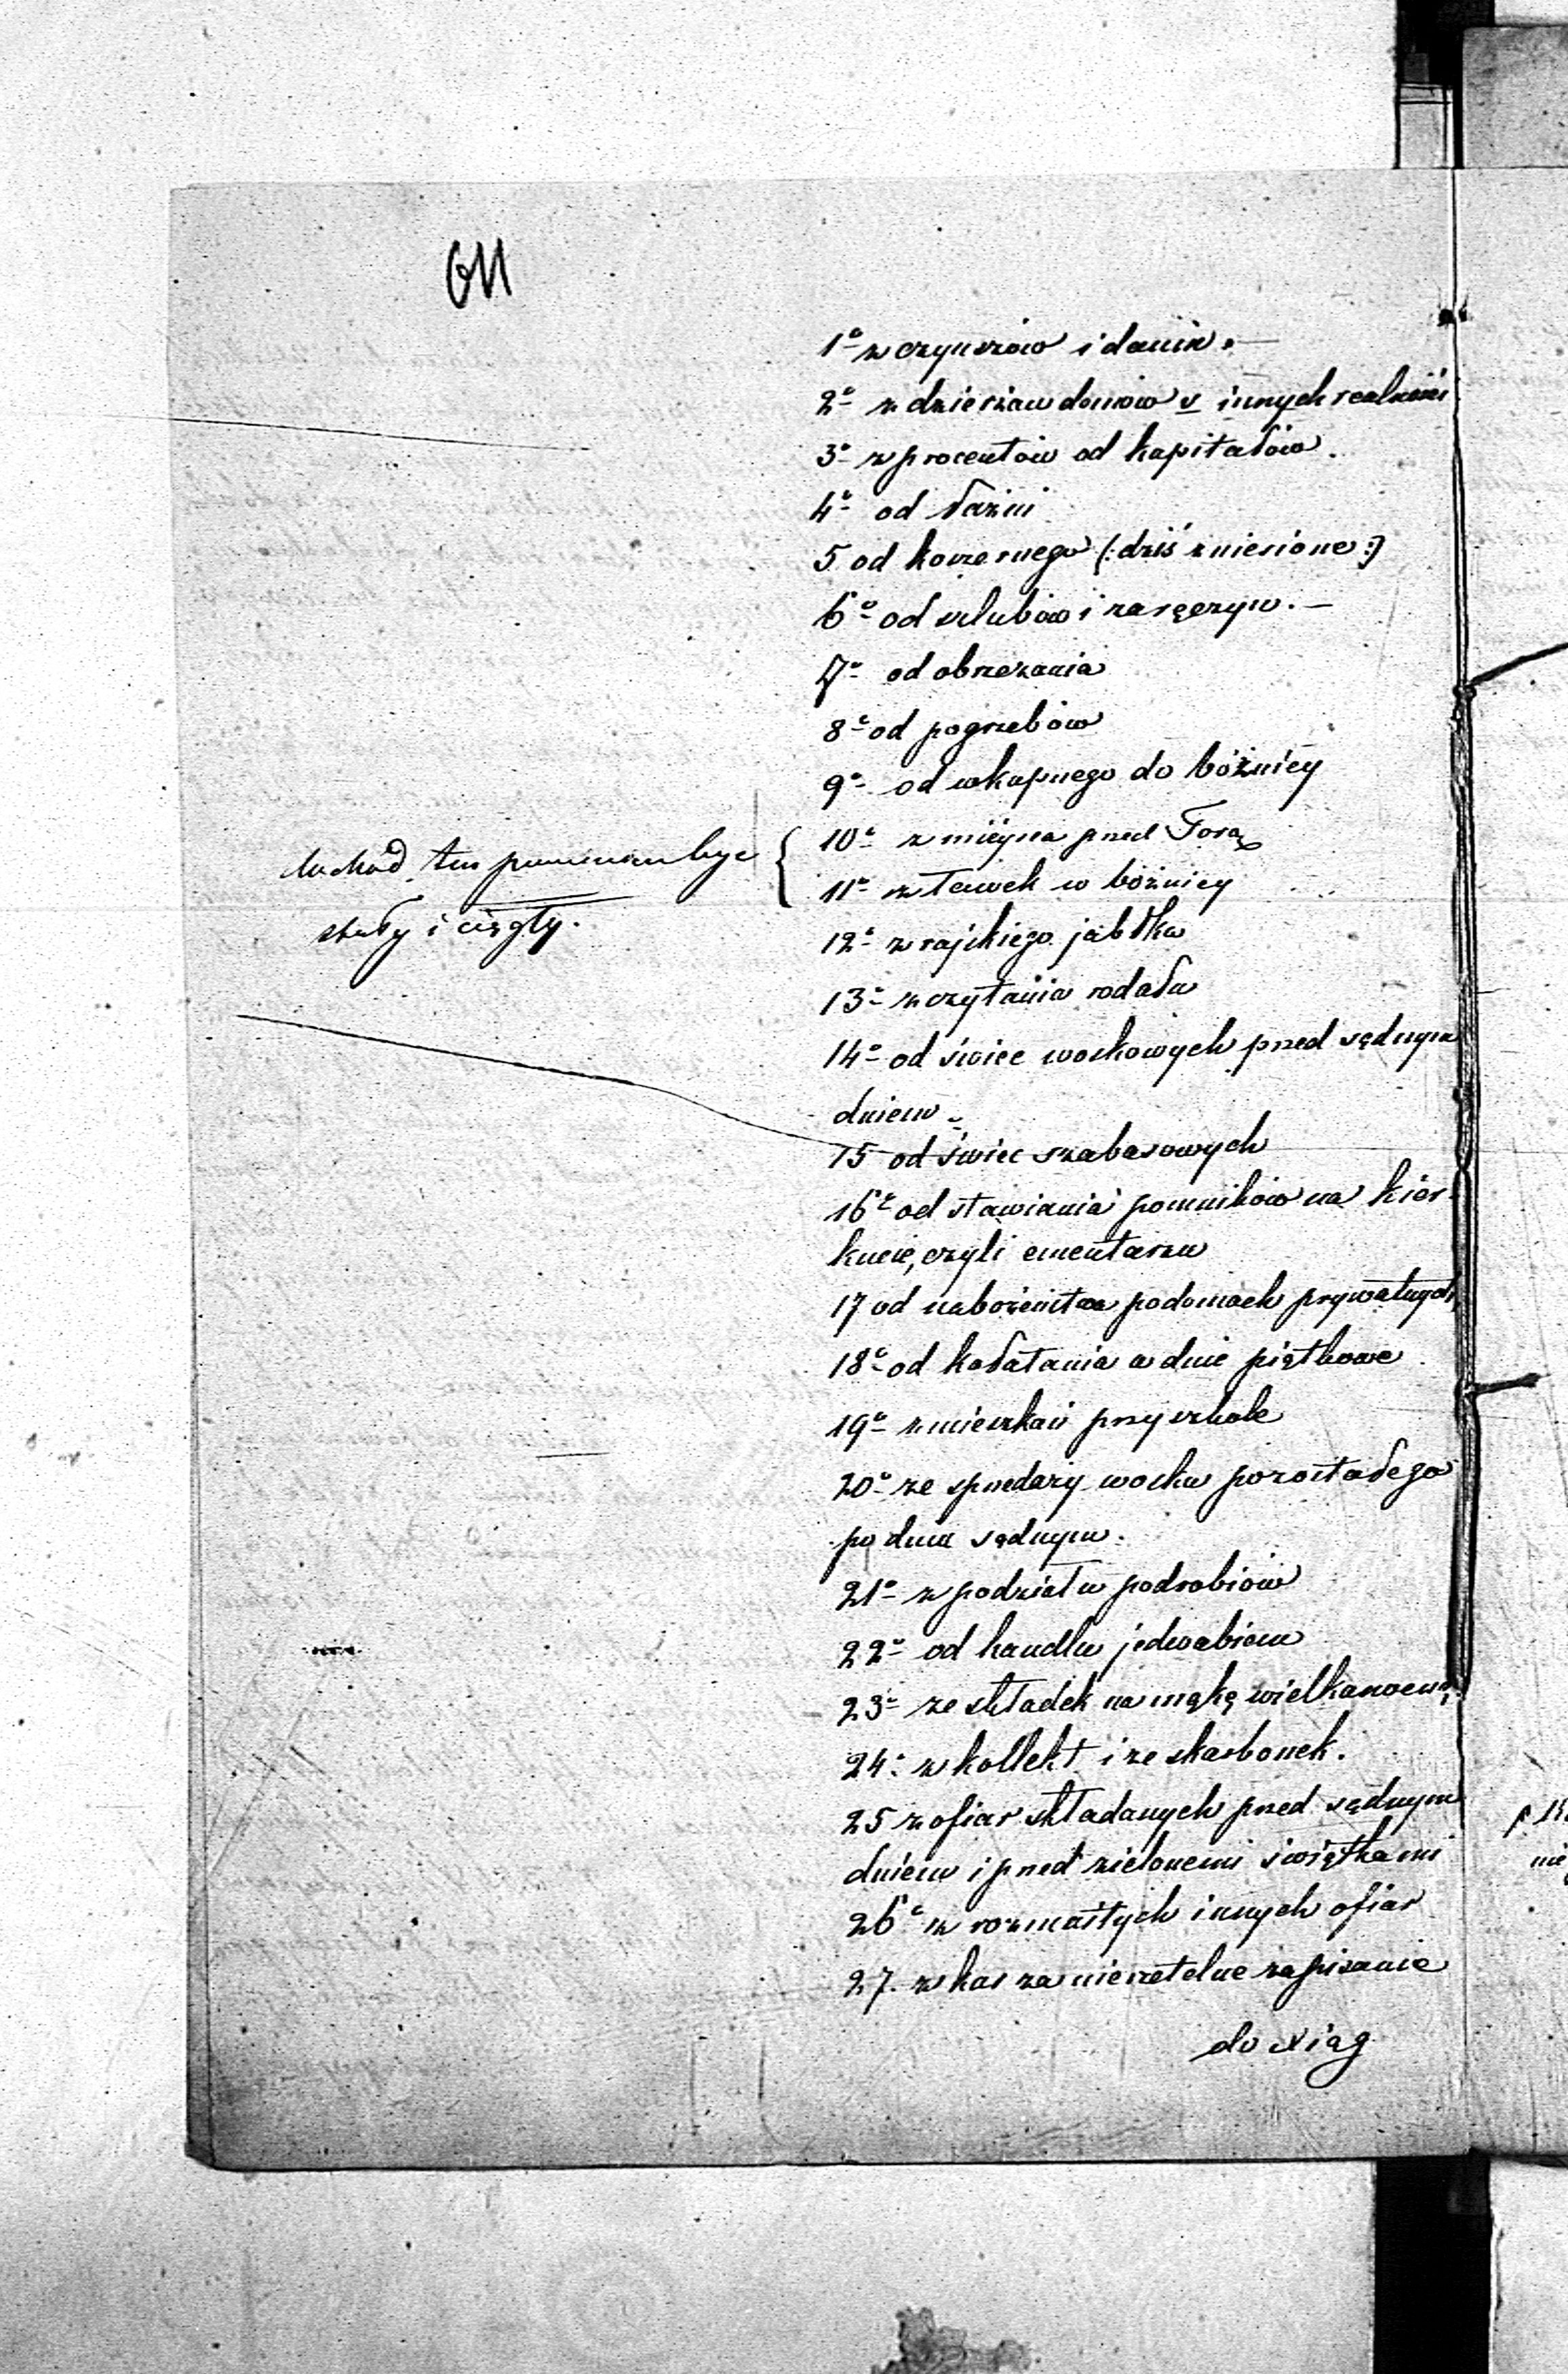 611
1o z czynszów i danin. —
2o z dzierżaw domów v innych realności
3o z procentów od kapitałów.
4o od łaźni
5 od koszernego (: dziś zniesione :)
6o od szlubów i zaręczyn. —
7o od obrzezania
8o od pogrzebów
9o od wkupnego do bóżnicy
10o z miejsca przed Torą
11o z ławek w bóżnicy
dochód ten powinien być
stały i ciągły.
12o z rajskiego jabłka
13o z czytania rodału
14o od świec woskowych przed sądnym
dniem
15 od świec szabasowych
16o od stawiania pomników na kier-
kucie, czyli cmentarzu
17 od nabożeństwa po domach prywatnych
18o od kołatania w dnie piątkowe
19o z mieszkań przy szkole
20o ze sprzedaży wosku pozostałego
po dniu sądnym.
21o z podziału podrobiów
22o od handlu jedwabiem
23o ze składek na mąkę wielkanocną
24o z kollekt i ze skarbonek.
25 z ofiar składanych przed sądnym
dniem i przed zielonemi świątkami
26o z rozmaitych innych ofiar
27. z kar za nierzetelne zapisanie
do xiąg